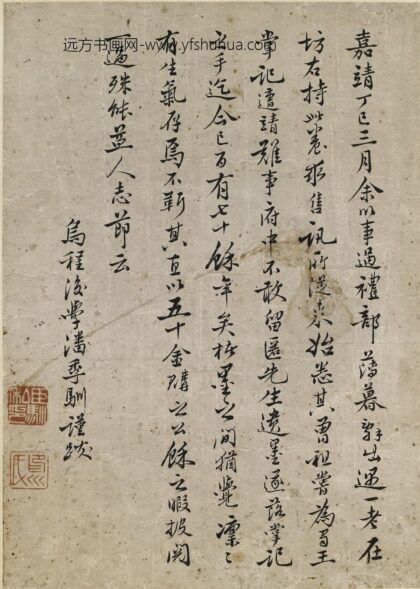 远方书画网-www.yfshuhua.com
嘉靖丁巳三月余以事過禮部薄暮辭出遇一老在
坊右持此卷求售訊所從來始悉其曾祖嘗為蜀王
掌記遭靖難事府中不敢留匿先生遺墨遂落掌記
之手迄今已百有七十餘年矣楮墨之間猶覺凜〻
有生氣存焉不靳其直以五十金購之公餘之暇披閱
一過殊能益人志節云
烏程後學潘季馴謹跋